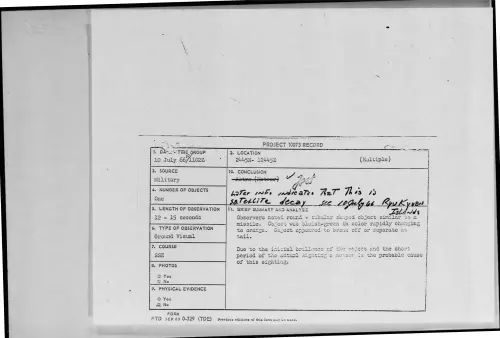 PROJECT 10073 RECORD
1. DATE-TIME GROUP
10 July 66/1102Z
2. LOCATION
2445N- 12445E
(Multiple)
3. SOURCE
Military
10. CONCLUSION
Astro (Meteor)
Later info indicates That This is
satellite decay
Ryukyuan
Islands
4. NUMBER OF OBJECTS
One
5. LENGTH OF OBSERVATION
12 - 15 seconds
11. BRIEF SUMMARY AND ANALYSIS
Observers noted round - tubular shaped object similar to a
missile. Object was bluish-green in color rapidly changing
to orange. Object appeared to break off or separate at
tail.
6. TYPE OF OBSERVATION
Ground Visual
7. COURSE
SSE
Due to the initial brilliance of the object and the short
period of the actual sighting a meteor is the probable cause
of this sighting.
8. PHOTOS
□ Yes
□ No
9. PHYSICAL EVIDENCE
□ Yes
□ No
FORM
FTD SEP 63 0-329 (TDE) Previous editions of this form may be used.